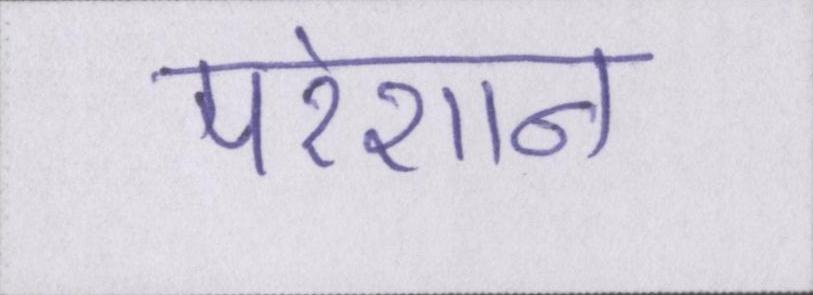 परेशान